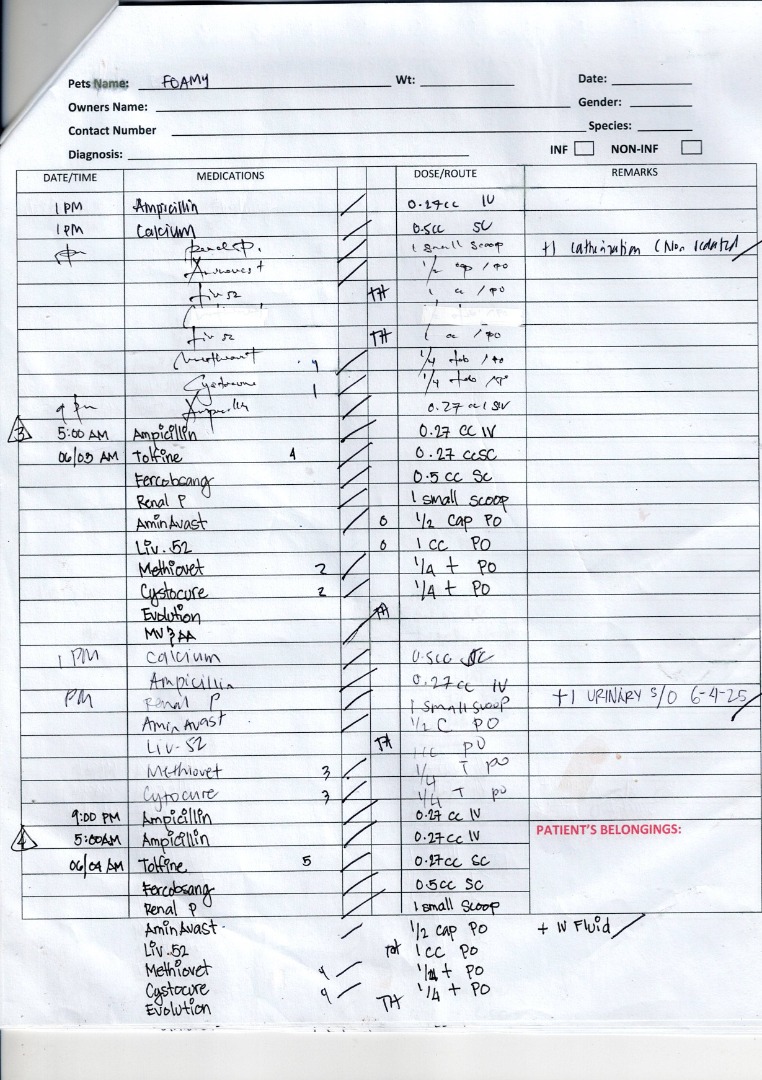 Pets Name: FOAMY Wt: Date:
Owners Name: Gender:
Contact Number Species:
Diagnosis: INF NON-INF
DATE/TIME MEDICATIONS DOSE/ROUTE REMARKS
1 PM Ampicillin 0.27cc IV
1 PM Calcium 0.5cc SC
pm Renal P. 1 small scoop +1 catheterization (Non
1/2 cap / PO
Liv 52 TH 1 cc / PO
Liv 52 TH 1 cc / PO
1/4 tab / PO
Cystocure 1 1/4 tab PO
9 pm Ampicillin 0.27 cc IV
3 5:00 AM Ampicillin 0.27 CC IV
06/03 AM Tolfine 4 0.27 cc SC
Fercobsang 0.5 cc SC
Renal P 1 small scoop
AminAvast 0 1/2 cap PO
Liv.52 0 1 CC PO
Methiovet 2 1/4 t PO
Cystocure 2 1/4 t PO
Evolution TH
MV & AA
1 PM Calcium 0.5cc SC
Ampicillin 0.27cc IV
PM Renal P 1 small scoop +1 URINARY S/O 6-4-25
Amin Avast 1/2 C PO
Liv-52 TH 1cc PO
Methiovet 3 1/4 T po
Cytocure 3 1/4 T po
9:00 PM Ampicillin 0.27 cc IV
4 5:00AM Ampicillin 0.27cc IV PATIENT'S BELONGINGS:
06/04 AM Tolfine 5 0.27cc SC
Fercobsang 0.5cc SC
Renal P 1 small scoop
AminAvast 1/2 cap PO + IV Fluid
Liv.52 TH 1 CC PO
Methiovet 4 1/4 t PO
Cystocure 4 1/4 t PO
Evolution TH